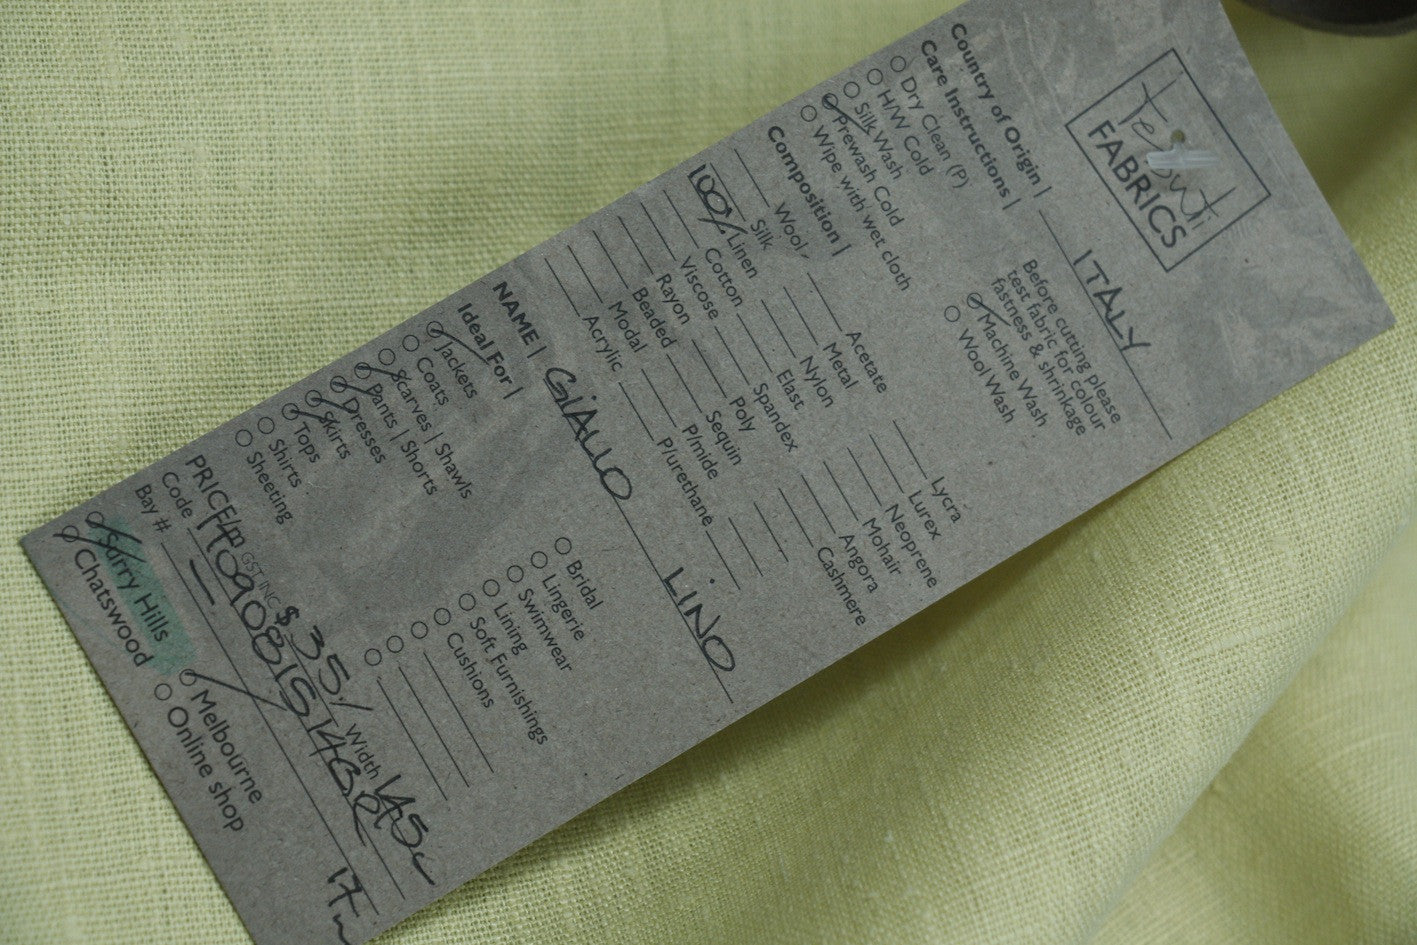 Tessuti
FABRICS
Country of Origin | ITALY
Care Instructions |
Dry Clean (P)
H/W Cold
Silk Wash
Prewash Cold
Wipe with wet cloth
Before cutting please
test fabric for colour
fastness & shrinkage
Machine Wash
Wool Wash
Composition |
Wool
Silk
100% Linen
Cotton
Viscose
Rayon
Beaded
Modal
Acrylic
Acetate
Metal
Nylon
Elast
Spandex
Poly
Sequin
P/mide
P/urethane
Lycra
Lurex
Neoprene
Mohair
Angora
Cashmere
NAME | GIALLO LINO
Ideal For |
Jackets
Coats
Scarves | Shawls
Pants | Shorts
Dresses
Skirts
Tops
Shirts
Sheeting
Bridal
Lingerie
Swimwear
Lining
Soft Furnishings
Cushions
PRICE/m GST INC $35/ Width 145c
Code
Bay #
Surry Hills
Chatswood
Melbourne
Online shop